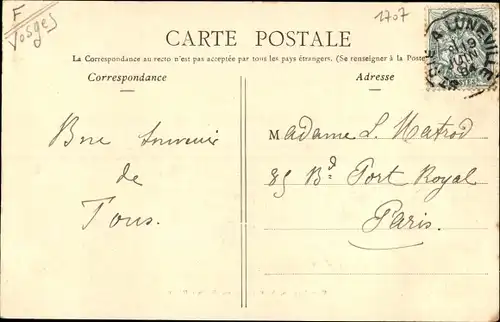 F
Vosges
1707
CARTE POSTALE
La Correspondance au recto n'est pas acceptée par tous les pays étrangers. (Se renseigner à la Poste
Correspondance
Adresse
A LUNEVILLE
Bne Souvenir
de
Tous.
Madame L. Matrod
85 Bd Port Royal
Paris.